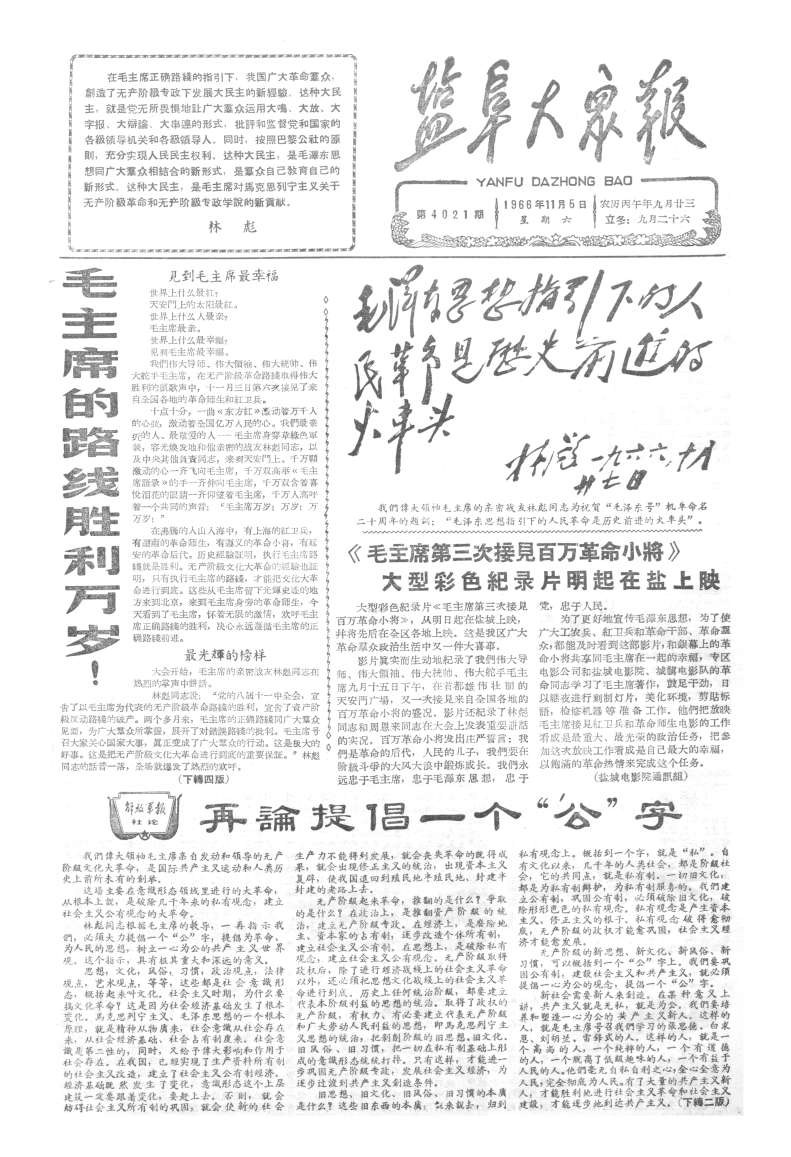 在毛主席正确路綫的指引下，我国广大革命羣众，
創造了无产阶級专政下发展大民主的新經驗。这种大民
主，就是党无所畏惧地让广大羣众运用大鳴、大放、大
字报、大辯論、大串連的形式，批評和监督党和国家的
各級領导机关和各級領导人。同时，按照巴黎公社的原
則，充分实現人民民主权利。这种大民主，是毛澤东思
想同广大羣众相結合的新形式，是羣众自己敎育自己的
新形式。这种大民主，是毛主席对馬克思列宁主义关于
无产阶級革命和无产阶級专政学說的新貢献。
林 彪
盐阜大众报
YANFU DAZHONG BAO
第4021期
1966年11月5日
星期六
农历丙午年九月廿三
立冬：九月二十六
毛主席的路线胜利万岁！
見到毛主席最幸福
世界上什么最紅？
天安門上的太阳最紅。
世界上什么人最亲？
毛主席最亲。
世界上什么最幸福？
見到毛主席最幸福。
我們伟大导师、伟大領袖、伟大統帅、伟
大舵手毛主席，在无产阶級革命路綫取得伟大
胜利的凱歌声中，十一月三日第六次接見了来
自全国各地的革命师生和紅卫兵。
十点十分，一曲《东方紅》激动着万千人
的心弦，激动着全国亿万人民的心。我們最亲
的人、最敬爱的人——毛主席身穿草綠色軍
装，容光焕发地和他亲密的战友林彪同志，以
及中央其他負責同志，来到天安門上。千万顆
激动的心一齐飞向毛主席，千万双高举《毛主
席語录》的手一齐伸向毛主席，千万双含着喜
悅泪花的眼睛一齐仰望着毛主席，千万人高呼
着一个共同的声音：“毛主席万岁！万岁！万
万岁！”
在沸腾的人山人海中，有上海的紅卫兵，
有湖南的革命师生，有遵义的革命小将，有延
安的革命后代。历史經驗証明，执行毛主席路
綫就是胜利。无产阶級文化大革命的經驗也証
明，只有执行毛主席的路綫，才能把文化大革
命进行到底。这些从毛主席留下光輝史迹的地
方来到北京，来到毛主席身旁的革命师生，今
天看到了毛主席，怀着无限的激情，欢呼毛主
席正确路綫的胜利，决心永远遵循毛主席的正
确路綫前进。
最光輝的榜样
大会开始，毛主席的亲密战友林彪同志在
热烈的掌声中讲話。
林彪同志說：“党的八届十一中全会，宣
告了以毛主席为代表的无产阶級革命路綫的胜利，宣告了資产阶
級反动路綫的破产。两个多月来，毛主席的正确路綫同广大羣众
見面，为广大羣众所掌握，展开了对錯誤路綫的批判。毛主席号
召大家关心国家大事，真正变成了广大羣众的行动。这是极大的
好事。这是把无产阶級文化大革命进行到底的重要保証。”林彪
同志的話音一落，全场就爆发了热烈的欢呼。
（下轉四版）
毛澤东思想指引下的人
民革命是历史前进的
火車头
林彪 一九六六、十月
廿七日
我們偉大領袖毛主席的亲密战友林彪同志为祝賀“毛泽东号”机車命名
二十周年的題詞：“毛泽东思想指引下的人民革命是历史前进的火車头”。
《毛主席第三次接見百万革命小將》
大型彩色紀录片明起在盐上映
大型彩色紀录片《毛主席第三次接見
百万革命小將》，从明日起在盐城上映，
幷将先后在各区各地上映。这是我区广大
革命羣众政治生活中又一件大喜事。
影片真实而生动地紀录了我們伟大导
师、伟大領袖、伟大統帅、伟大舵手毛主
席九月十五日下午，在首都雄伟壮丽的
天安門广場，又一次接見来自全国各地的
百万革命小將的盛况。影片还紀录了林彪
同志和周恩来同志在大会上发表重要讲話
的实况。百万革命小將发出庄严誓言：我
們是革命的后代，人民的儿子，我們要在
阶級斗爭的大风大浪中鍛炼成长。我們永
远忠于毛主席，忠于毛澤东思想，忠于
党，忠于人民。
为了更好地宣传毛澤东思想，为了使
广大工农兵、紅卫兵和革命干部、革命羣
众，都能及时看到这部影片，和銀幕上的革
命小將共享同毛主席在一起的幸福，专区
电影公司和盐城电影院、城鎭电影队的革
命同志学习了毛主席著作，鼓足干劲，日
以继夜进行刻制灯片，美化环境，剪貼标
語，检修机器等准备工作。他們把放映
毛主席接見紅卫兵和革命师生电影的工作
看成是最重大、最光荣的政治任务，把参
加这次放映工作看成是自己最大的幸福，
以飽滿的革命热情来完成这个任务。
（盐城电影院通訊組）
解放军报
社論
再論提倡一个“公”字
我們偉大領袖毛主席亲自发动和領导的无产
阶級文化大革命，是国际共产主义运动和人类历
史上前所未有的創举。
这場主要在意識形态領域里进行的大革命，
从根本上說，是破除几千年来的私有观念，建立
社会主义公有观念的大革命。
林彪同志根据毛主席的敎导，一再指示我
們，必須大力提倡一个“公”字，提倡为革命、
为人民的思想，树立一心为公的共产主义世界
观。这个指示，具有极其重大和深远的意义。
思想，文化，风俗，习慣，政治观点，法律
观点，艺术观点，等等，这些都是社会意識形
态，概括起来叫文化。社会主义时期，为什么要
搞文化革命？这是因为社会經济基础发生了根本
变化。馬克思列宁主义、毛泽东思想的一个根本
原理，就是精神从物质来，社会意識从社会存在
来，从社会經济基础、社会占有制度来。社会意
識是第二性的，同时，又給予偉大影响和作用于
社会存在。在我国，已經实現了生产資料所有制
的社会主义改造，建立了社会主义公有制經济。
經济基础既然发生了变化，意識形态这个上层
建筑一定要跟着变化，要赶上去。不則，就会
妨碍社会主义所有制的巩固，就会使新的社会
生产力不能得到发展，就会丧失革命的既得成
果，就会出现修正主义的統治，出现資本主义
复辟，使我国退回到殖民地半殖民地、封建半
封建的老路上去。
无产阶級起来革命，推翻的是什么？爭取
的是什么？在政治上，是推翻資产阶級的統
治，建立无产阶級专政。在經济上，是廢除地
主、資本家的占有制，逐步改造个体所有制，
建立社会主义公有制。在思想上，是破除私有
观念，建立社会主义公有观念。无产阶級取得
政权后，除了进行經济战綫上的社会主义革命
以外，还必須把思想文化战綫上的社会主义革
命进行到底。历史上任何統治阶級，都要建立
代表本阶級利益的思想的統治。取得了政权的
无产阶級，有权力、有必要建立代表无产阶級
和广大劳动人民利益的思想，即馬克思列宁主
义思想的統治，把剝削阶級的旧思想、旧文化、
旧风俗、旧习慣，把一切在私有制基础上形
成的意識形态統統打掉。只有这样，才能进一
步巩固无产阶級专政，发展社会主义經济，为
逐步过渡到共产主义創造条件。
旧思想，旧文化，旧风俗，旧习慣的本质
是什么？这些旧东西的本质，說来說去，归到
私有观念上。概括到一个字，就是“私”。自
有文化以来，几千年的人类社会，都是阶級社
会，它的共同点，就是私有制。一切旧文化，
都是为私有制辯护，为私有制服务的。我們建
立公有制，巩固公有制，必須破除旧文化，破
除形形色色的私有观念。私有观念是产生資本
主义、修正主义的根子。私有观念破得愈彻
底，无产阶級的政权才能愈巩固，社会主义經
济才能愈发展。
无产阶級的新思想、新文化、新风俗、新
习慣，可以概括到一个“公”字上。我們要巩
固公有制，建設社会主义和共产主义，就必須
提倡一心为公的观念，提倡一个“公”字。
新社会需要新人来創造。在某种意义上
讲，共产主义就是无私，就是为公。我們要培
养和塑造一心为公的共产主义新人。这样的
人，就是毛主席号召我們学习的张思德、白求
恩、刘胡兰、雷鋒式的人。这样的人，就是一
个高尚的人，一个純粹的人，一个有道德
的人，一个脫离了低級趣味的人，一个有益于
人民的人。他們毫无自私自利之心，全心全意为
人民，完全彻底为人民。有了大量的共产主义新
人，才能胜利地进行社会主义革命和社会主义
建設，才能逐步地到达共产主义。（下轉二版）